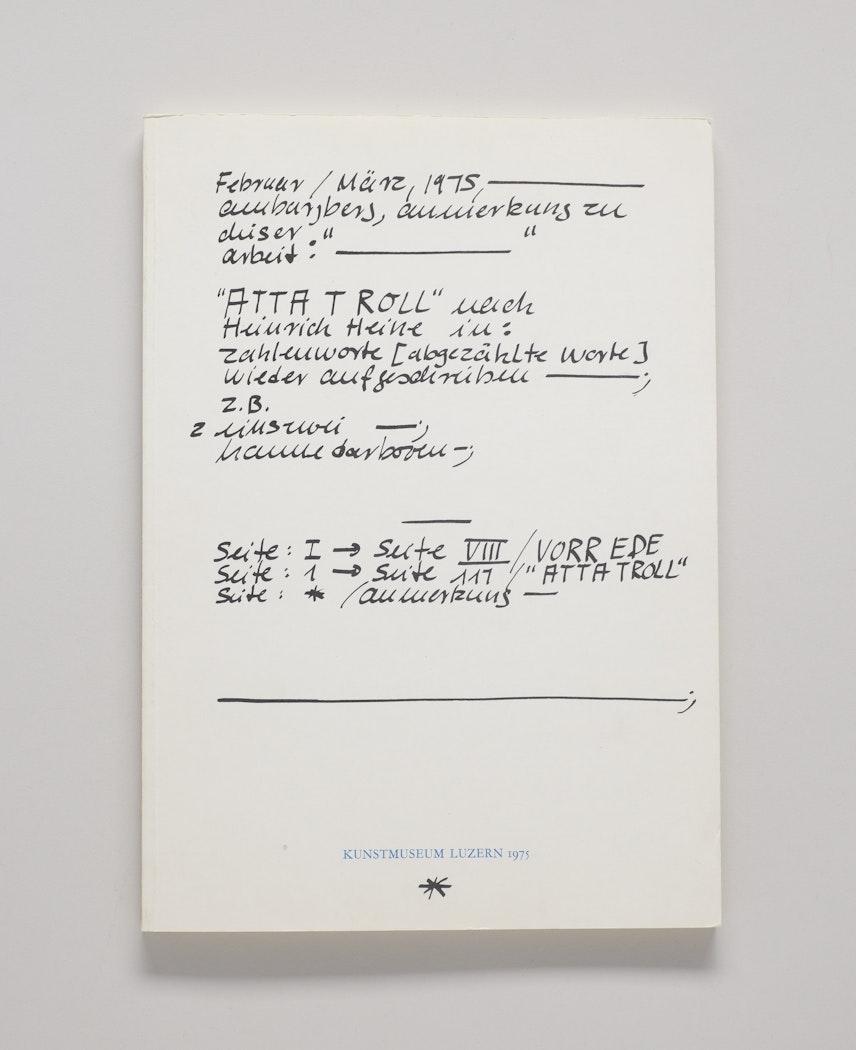 Februar / März, 1975, ———
am burgberg, anmerkung zu
diser " "
arbeit : ———
"ATTA TROLL" nach
Heinrich Heine in :
zahlenworte [abgezählte worte]
wieder aufgeschrieben ———;
z.B.
2 einszwei —;
hanne darboven —;
—
Seite : I → Seite VIII / VORREDE
Seite : 1 → Seite 111 / "ATTA TROLL"
Seite : * / anmerkung —
———;
KUNSTMUSEUM LUZERN 1975
*